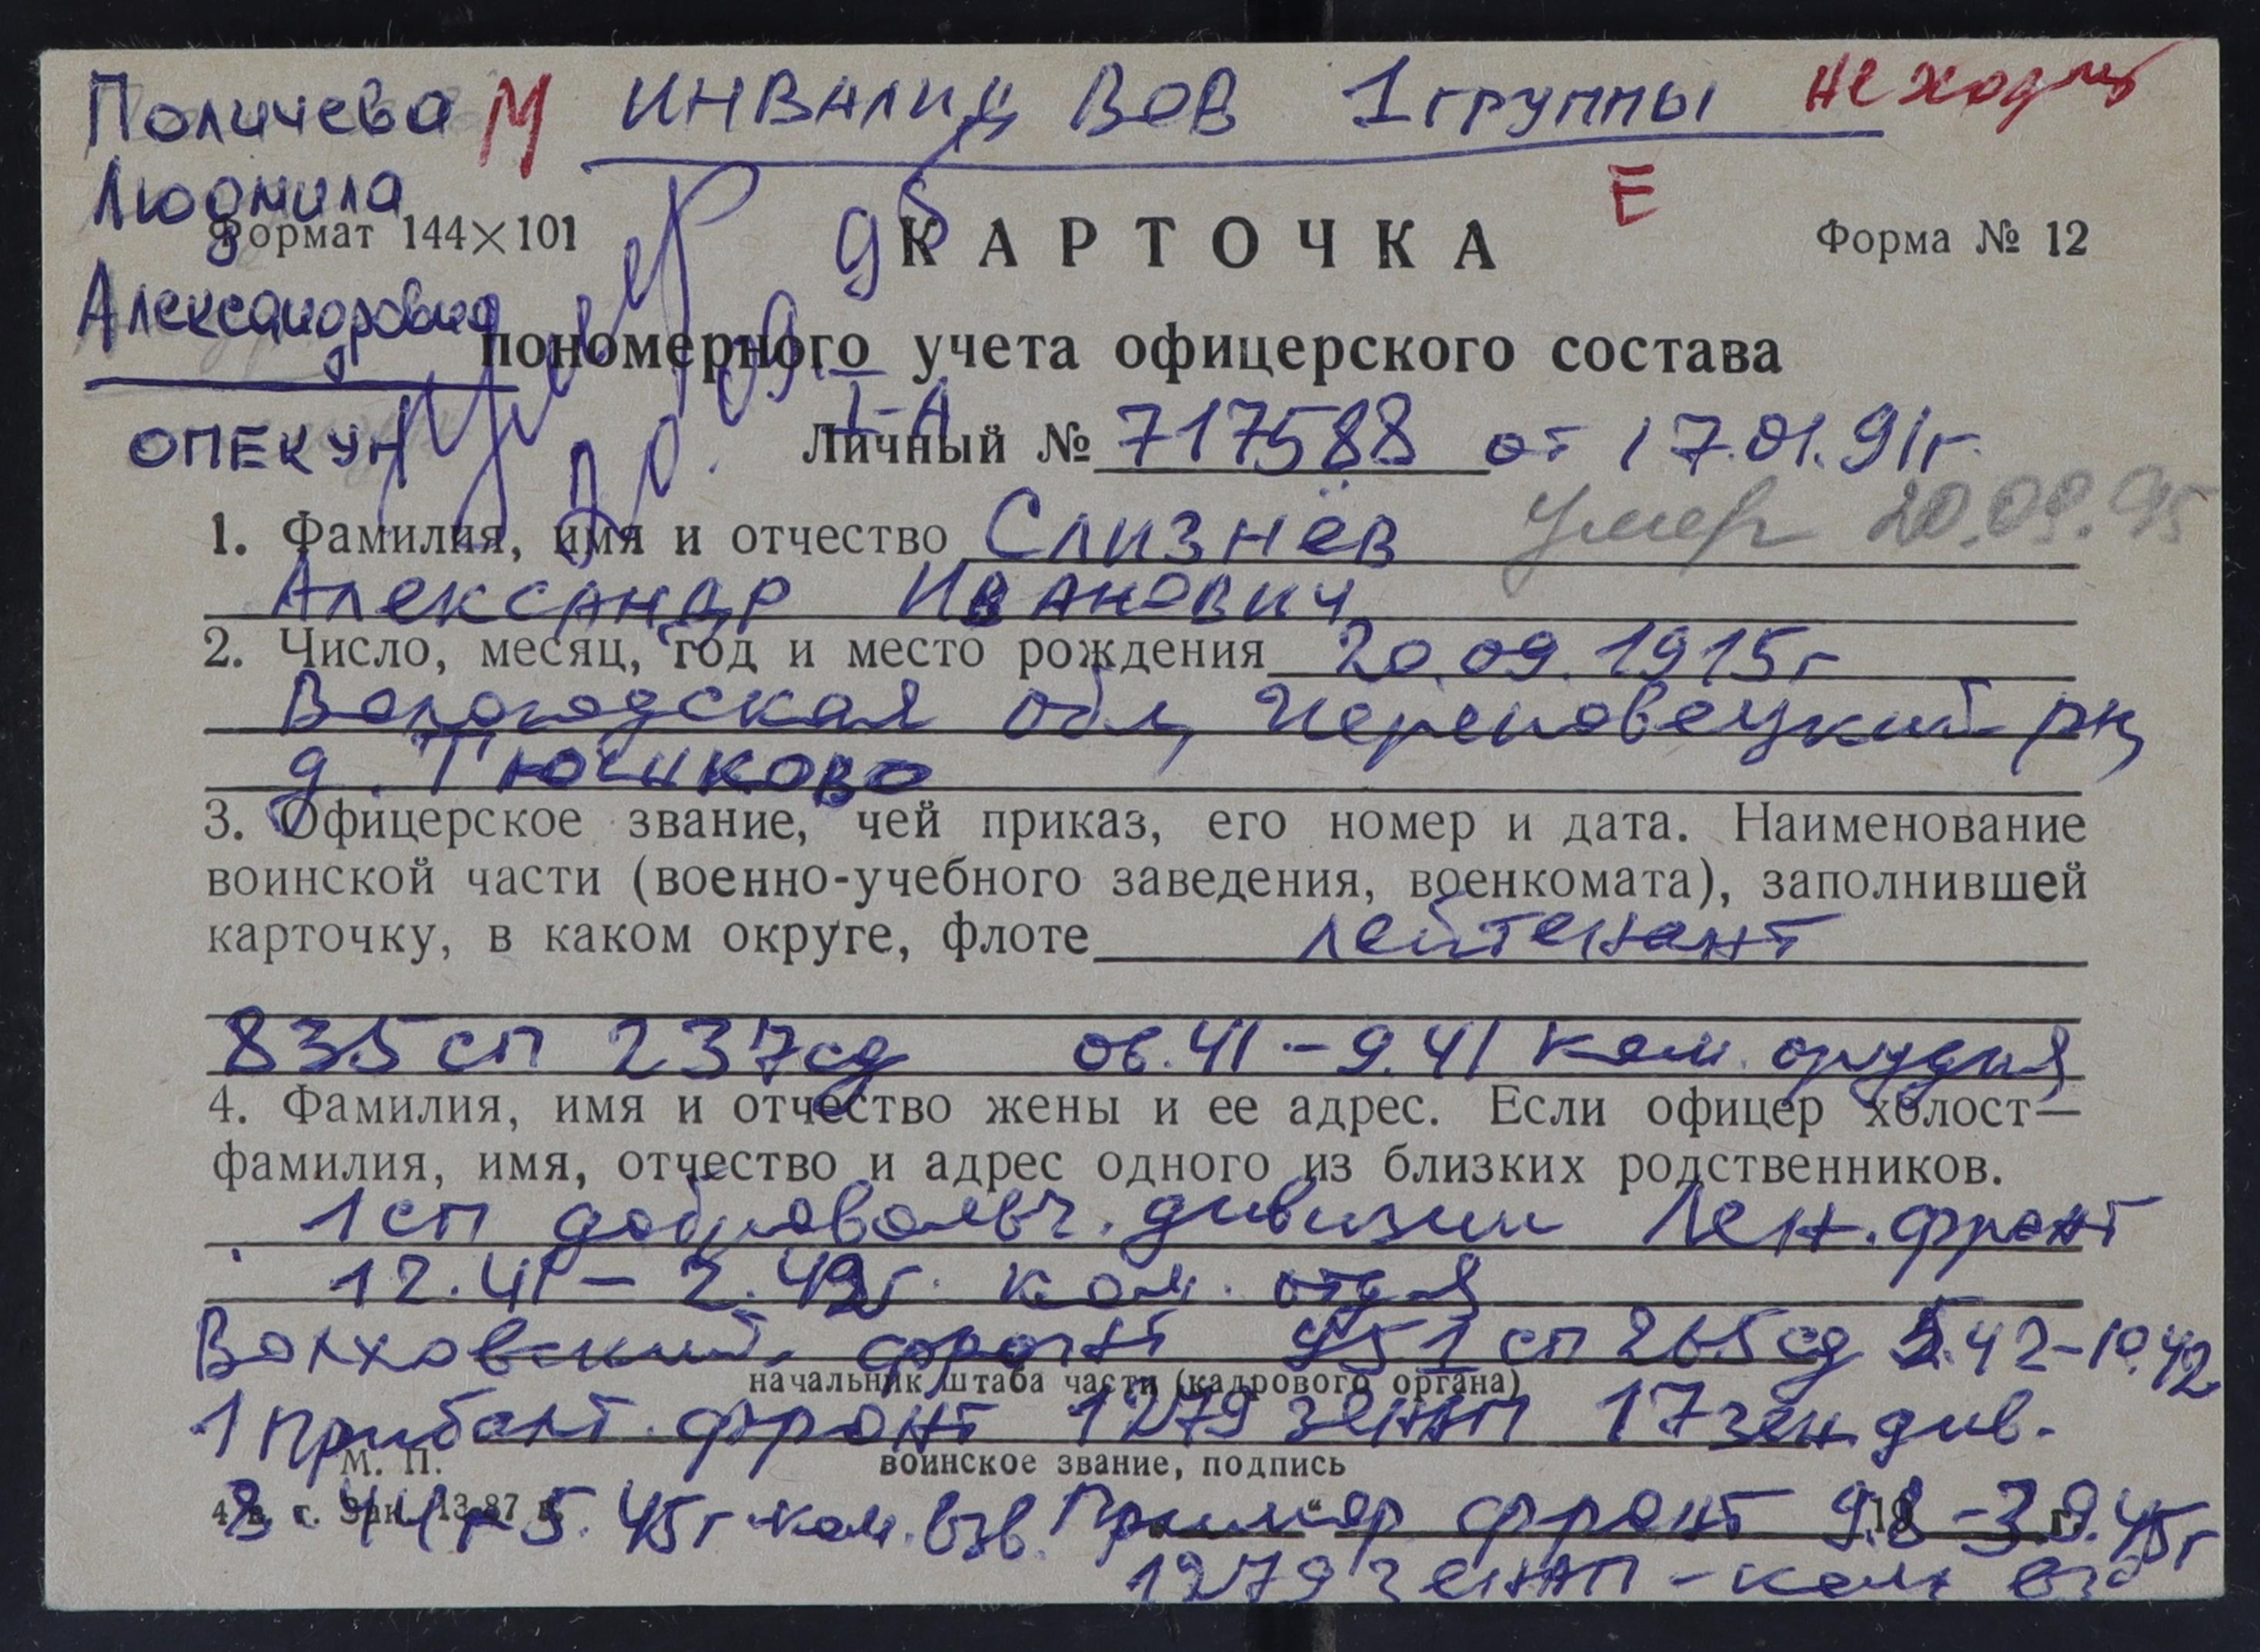 Поличева М ИНВАЛИД ВОВ 1 группы не ходит
Людмила Е
Формат 144×101 КАРТОЧКА Форма № 12
Александровна
пономерного учета офицерского состава
I-А
ОПЕКУН Личный № 717588 от 17.01.91г.
1. Фамилия, имя и отчество Слизнёв Умер 20.09.95
Александр Иванович
2. Число, месяц, год и место рождения 20.09.1915г
Вологодская обл, Череповецкий рн,
д.
3. Офицерское звание, чей приказ, его номер и дата. Наименование
воинской части (военно-учебного заведения, военкомата), заполнившей
карточку, в каком округе, флоте лейтенант
835 сп 237 сд 06.41-9.41 ком. орудия
4. Фамилия, имя и отчество жены и ее адрес. Если офицер холост—
фамилия, имя, отчество и адрес одного из близких родственников.
1 сп добровольч. дивизии Лен. фронт
12.41 - 2.42г. ком. отд-я
Волховский фронт 951 сп 265 сд 5.42-10.42
начальник штаба части (кадрового органа)
1 Прибалт. фронт 1279 зенап 17 зен. див.
М. П. воинское звание, подпись
8.44г-5.45г ком. взв. Примор фронт 9.8-3.9.45г
1279 зенап - ком взв